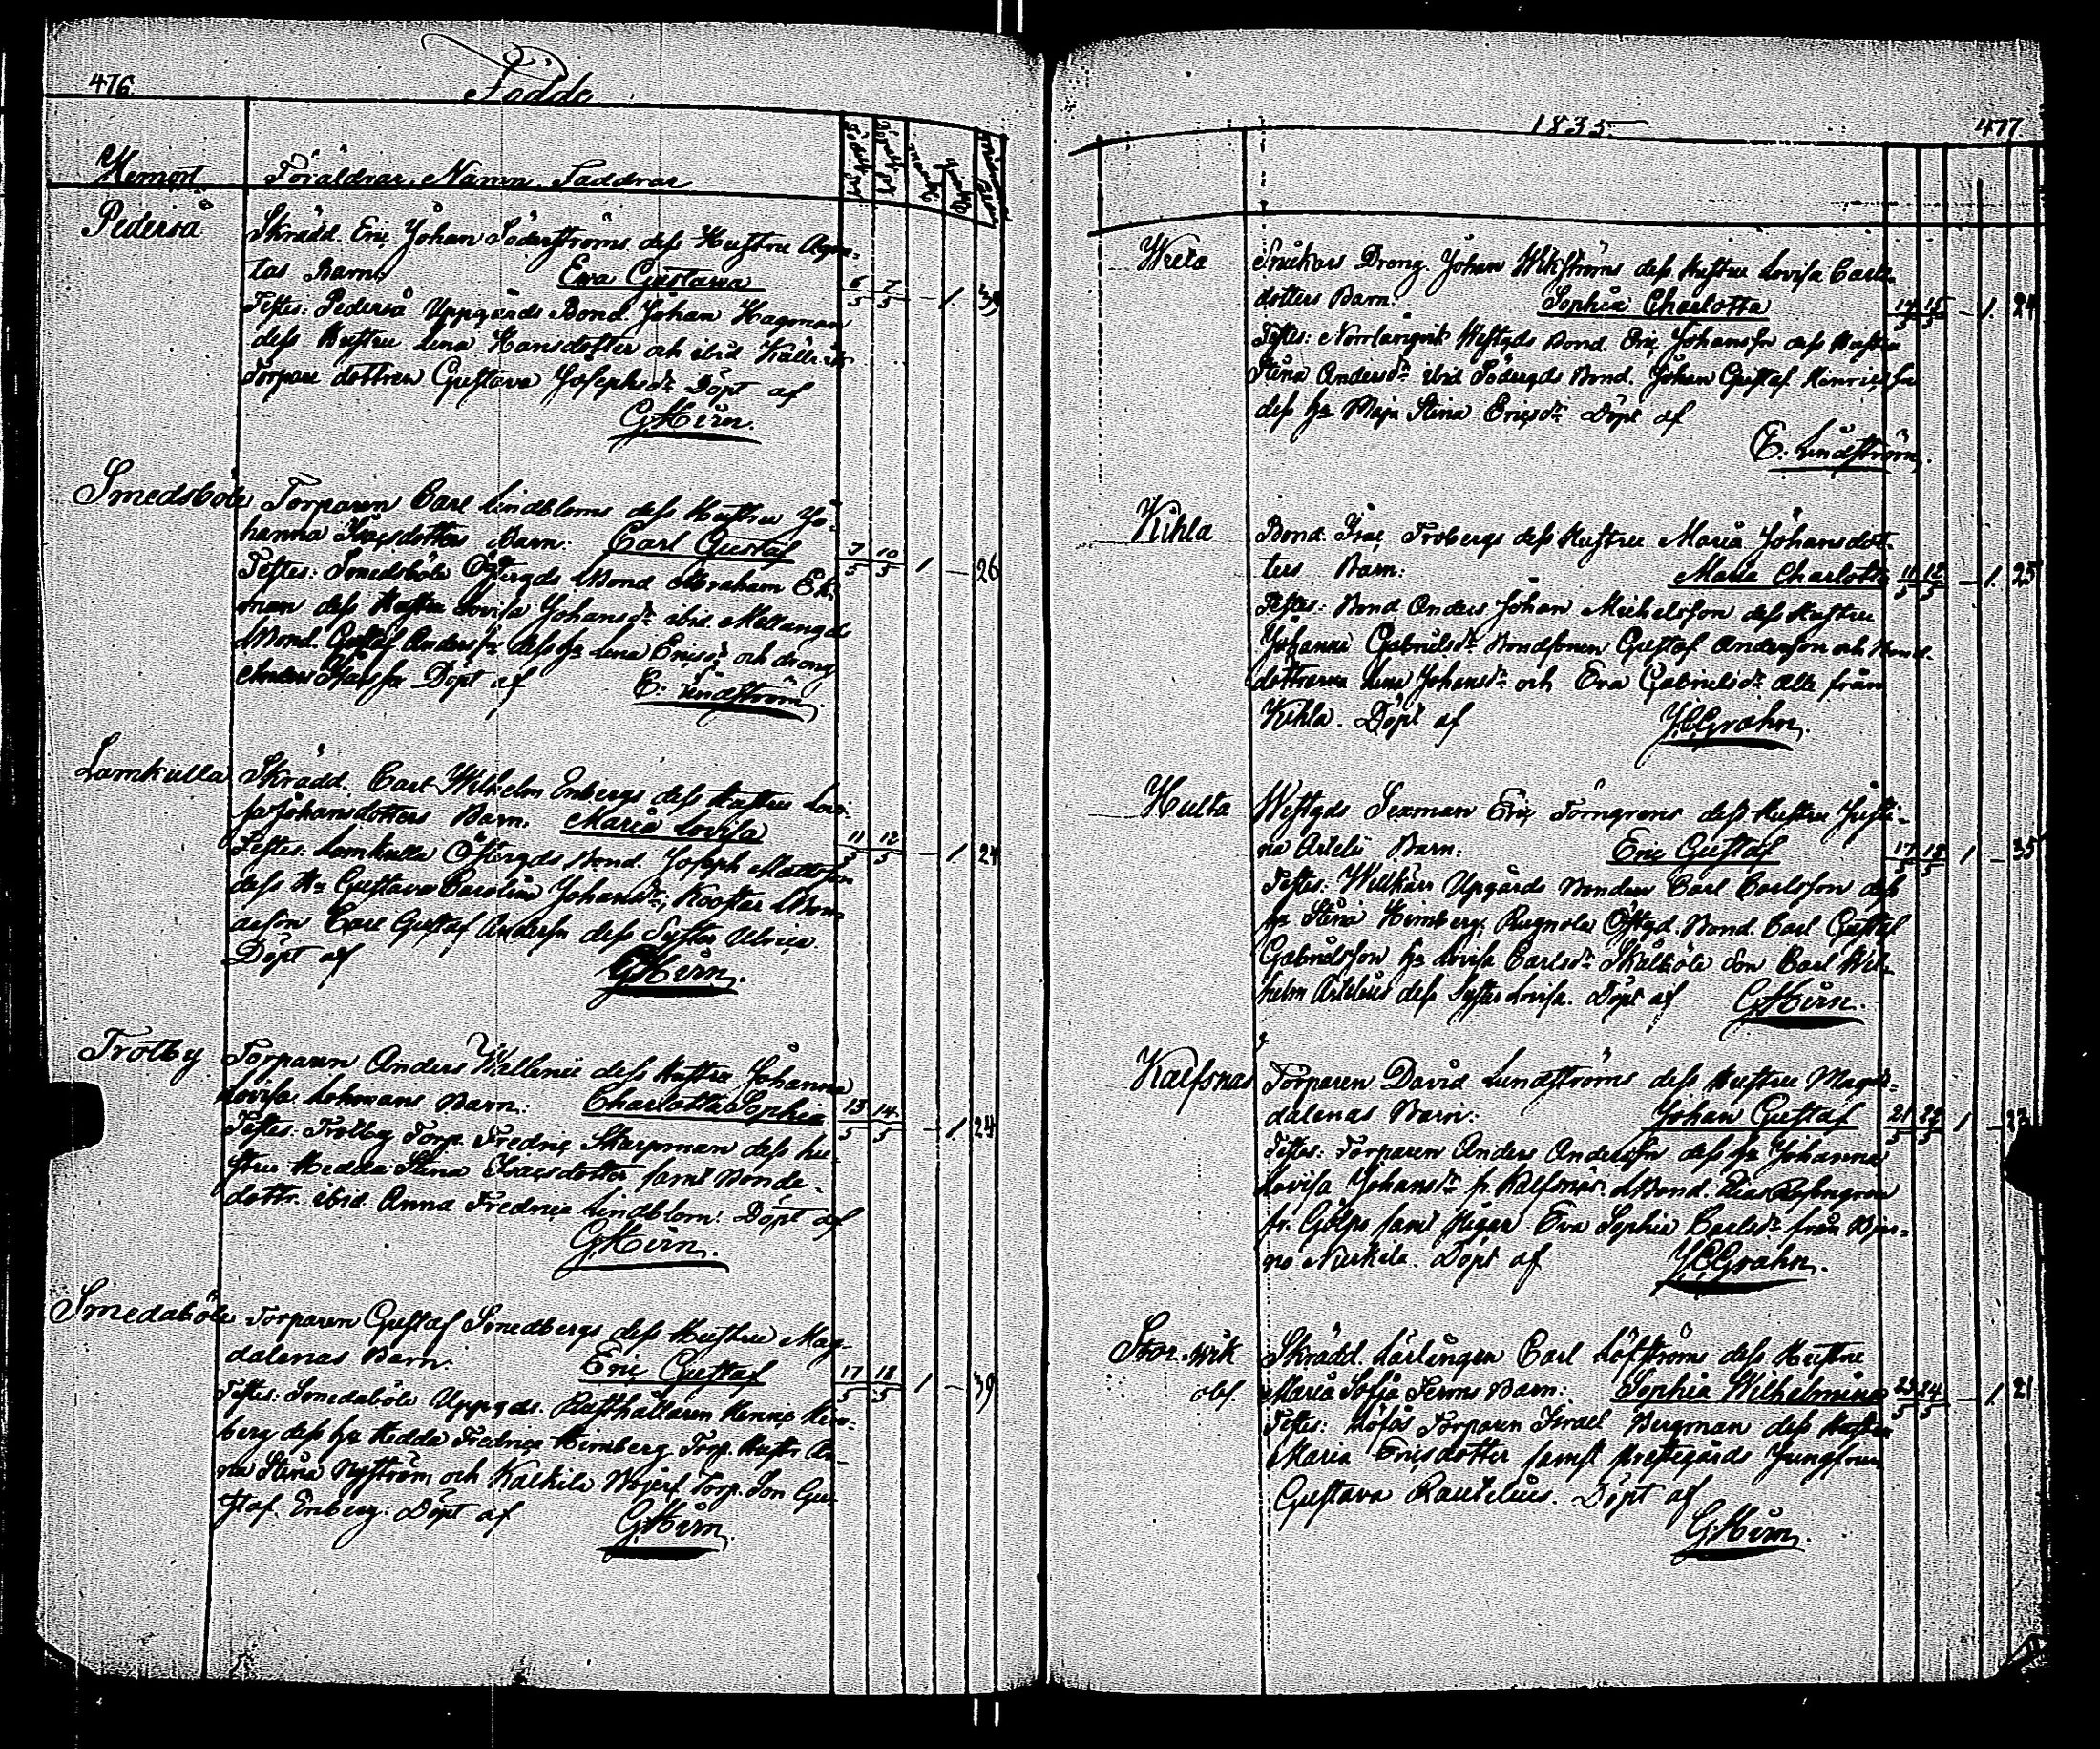 476
Födde
Hemort Föräldrar, Namn, Faddrar
Pederså Skrädd. Eric Johan Söderströms dess Hustru Agne-
tas Barn: Ewa Gustawa 6/5 7/5 – 1. 39
Testes: Pederså Uppgårds Bond. Johan Hagman
dess Hustru Lena Hansdotter och ibid
Torpare dottren Gustava Josephsdr Döpt af
G. Hirn.
Smedsböle Torparen Carl Lindbloms dess Hustru Jo-
hanna Isacsdotters Barn: Carl Gustaf 7/5 10/5 1 – 26
Testes: Smedsböle Östergds Bond Abraham Ek-
man dess Hustru Lovisa Johansdr ibid. Mellangds
Bond. Gustaf Andersson dess hu Lena Ericsdr och dräng
Döpt af E. Lindström
Lamkulla Skrädd. Carl Wilhelm Enbergs dess Hustru Lovi-
sa Johansdotters Barn: Maria Lovisa 11/5 12/5 – 1. 24
Testes: Lamkulla Östergds Bond. Joseph Mattsson
dess Hu Gustava Carolina Johansdr; Bon-
deson Carl Gustaf Andersn dess Syster Ulrica
Döpt af G. Hirn.
Trotby Torparen Anders Wallenii dess Hustru Johanna
Lovisa Lohmans Barn: Charlotta Sophia 13/5 14/5 – 1. 24
Testes: Trotby Torp. Fredric Skarpman dess hu-
stru Hedda Stina Isacsdotter samt Bonde-
dottr. ibid. Anna Fredrica Lindblom. Döpt af
G. Hirn.
Smedaböle Torparen Gustaf Smedbergs dess Hustru Mag-
dalenas Barn. Eric Gustaf 17/5 18/5 1 – 39
Testes. Smedaböle Uppgds. Rusthållaren Henric Heim-
berg dess hu Hedda Fredrica Heimberg Torp. Hustr. An-
na Stina Nyström och Kalkila Torp. Son Gu-
staf Enberg. Döpt af G. Hirn.
1835. 477.
Snickars Dreng. Johan Wikströms dess Hustru Lovisa Carls-
dotters Barn. Sophia Charlotta 14/5 15/5 – 1. 24
Testes: Norrlångvik Westgds Bond. Eric Johansson dess Hustru
Stina Andersdr ibid Södergds Bond. Johan Gustaf Henricsson
dess hu Maja Stina Ericsdr Döpt af
E. Lindström.
Kihla Bond. Isac Frobergs dess Hustru Maria Johansdot-
ters Barn: Maria Charlotta 11/5 12/5 – 1. 25
Testes: Bond Anders Johan Michelsson dess Hustru
Johanna Gabrielsdr Bondsonen Gustaf Anderson och Bond-
dottrarna Lena Johansdr och Eva Gabrielsdr alla från
Kihla. Döpt af J. C. Grahn.
Hulta Westgds Sexman Eric Törngrens dess Hustru Justi-
na Artelii Barn: Eric Gustaf 17/5 18/5 1 – 35
Testes: Willkärr Upgårds Bonden Carl Carlsson dess
hu Stina Heimberg; Rugnola Östgd. Bond. Carl Gustaf
Gabrielsson hu Lovisa Carlsdr Skälböle Son Carl Wil-
helm Artelius dess Syster Lovisa. Döpt af G. Hirn.
Kalfsnäs Torparen David Lundströms dess Hustru Mag-
dalenas Barn: Johan Gustaf 21/5 22/5 1 – 23
Testes: Torparen Anders Andersson dess hu Johanna
Lovisa Johansdr fr. Kalfsnäs. Bond. Elias
fr. samt pigan Eva Sophia Carlsdr från Bjer-
no Nurkila. Döpt af J. C. Grahn.
Stor-wik Skrädd. Lärlingen Carl Löfströms dess Hustru
obs. Maria Sofia Ferms Barn: Sophia Wilhelmina 23/5 24/5 – 1. 21
Testes: Löfås Torparen Israel Bergman dess Hustru
Maria Ericsdotter samt Prestgårds Jungfrun
Gustava Rautelius. Döpt af
G. Hirn.